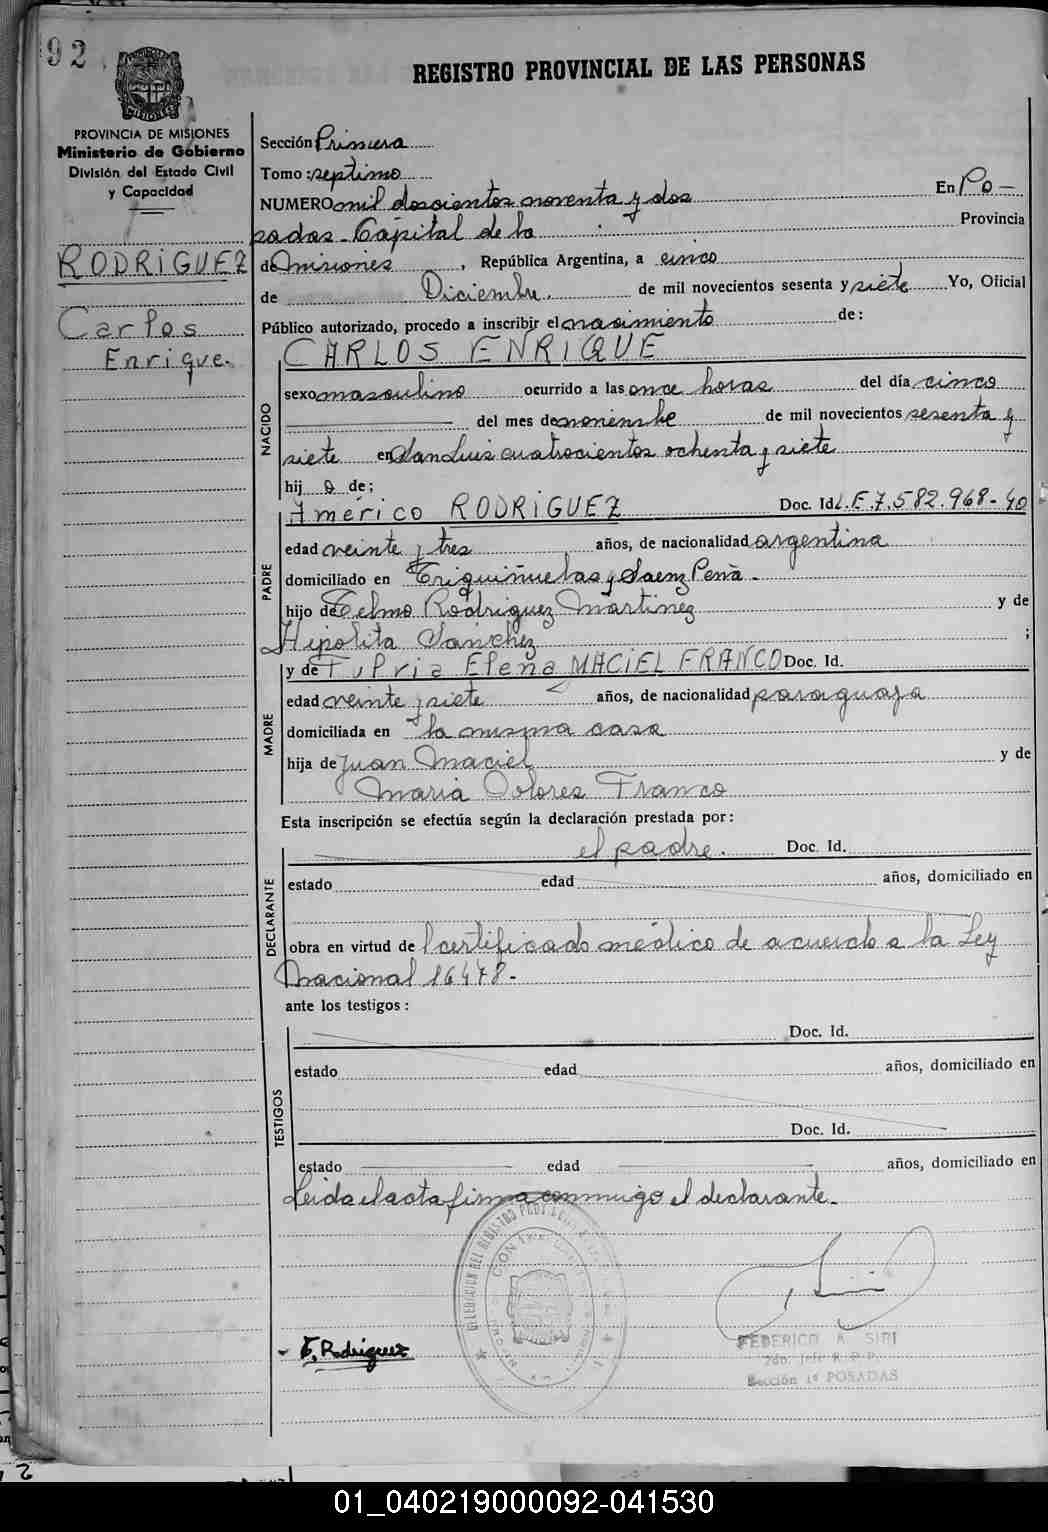 92
REGISTRO PROVINCIAL DE LAS PERSONAS
PROVINCIA DE MISIONES
Ministerio de Gobierno
División del Estado Civil
y Capacidad
RODRIGUEZ
Carlos
Enrique.
Sección Primera
Tomo: septimo
NUMERO mil doscientos noventa y dos En Po-
sadas - Capital de la Provincia
de Misiones, República Argentina, a cinco
de Diciembre. de mil novecientos sesenta y siete Yo, Oficial
Público autorizado, procedo a inscribir el nacimiento de:
CARLOS ENRIQUE
NACIDO
sexo masculino ocurrido a las once horas del día cinco
del mes de noviembre de mil novecientos sesenta y
siete en San Luis cuatrocientos ochenta y siete
hij o de;
PADRE
Américo RODRIGUEZ Doc. Id. L.E.7.582.968-40
edad veinte y tres años, de nacionalidad argentina
domiciliado en Triquiñuelas y Saenz Peña -
hijo de Telmo Rodriguez Martinez y de
Hipolita Sanchez ;
y de Tulria Elena MACIEL FRANCO Doc. Id.
MADRE
edad veinte y siete años, de nacionalidad paraguaya
domiciliada en la misma casa
hija de Juan Maciel y de
Maria Dolores Franco
Esta inscripción se efectúa según la declaración prestada por:
DECLARANTE
el padre. Doc. Id.
estado edad años, domiciliado en
obra en virtud de l certificado médico de acuerdo a la Ley
Nacional 16478.-
ante los testigos:
TESTIGOS
Doc. Id.
estado edad años, domiciliado en
Doc. Id.
estado edad años, domiciliado en
Leida el acta firma conmigo el declarante.
DELEGACION DEL REGISTRO
- F. Rodriguez
FEDERICO A. SIRI
2do. Jefe R. P. P.
Sección 1ª POSADAS
01_040219000092-041530